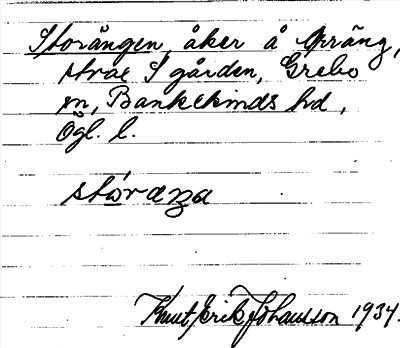 Storängen, åker å Spräng,
strax S gården, Grebo
sn, Bankekinds hd,
Ögl. l.
Knut Erik Johansson 1934.